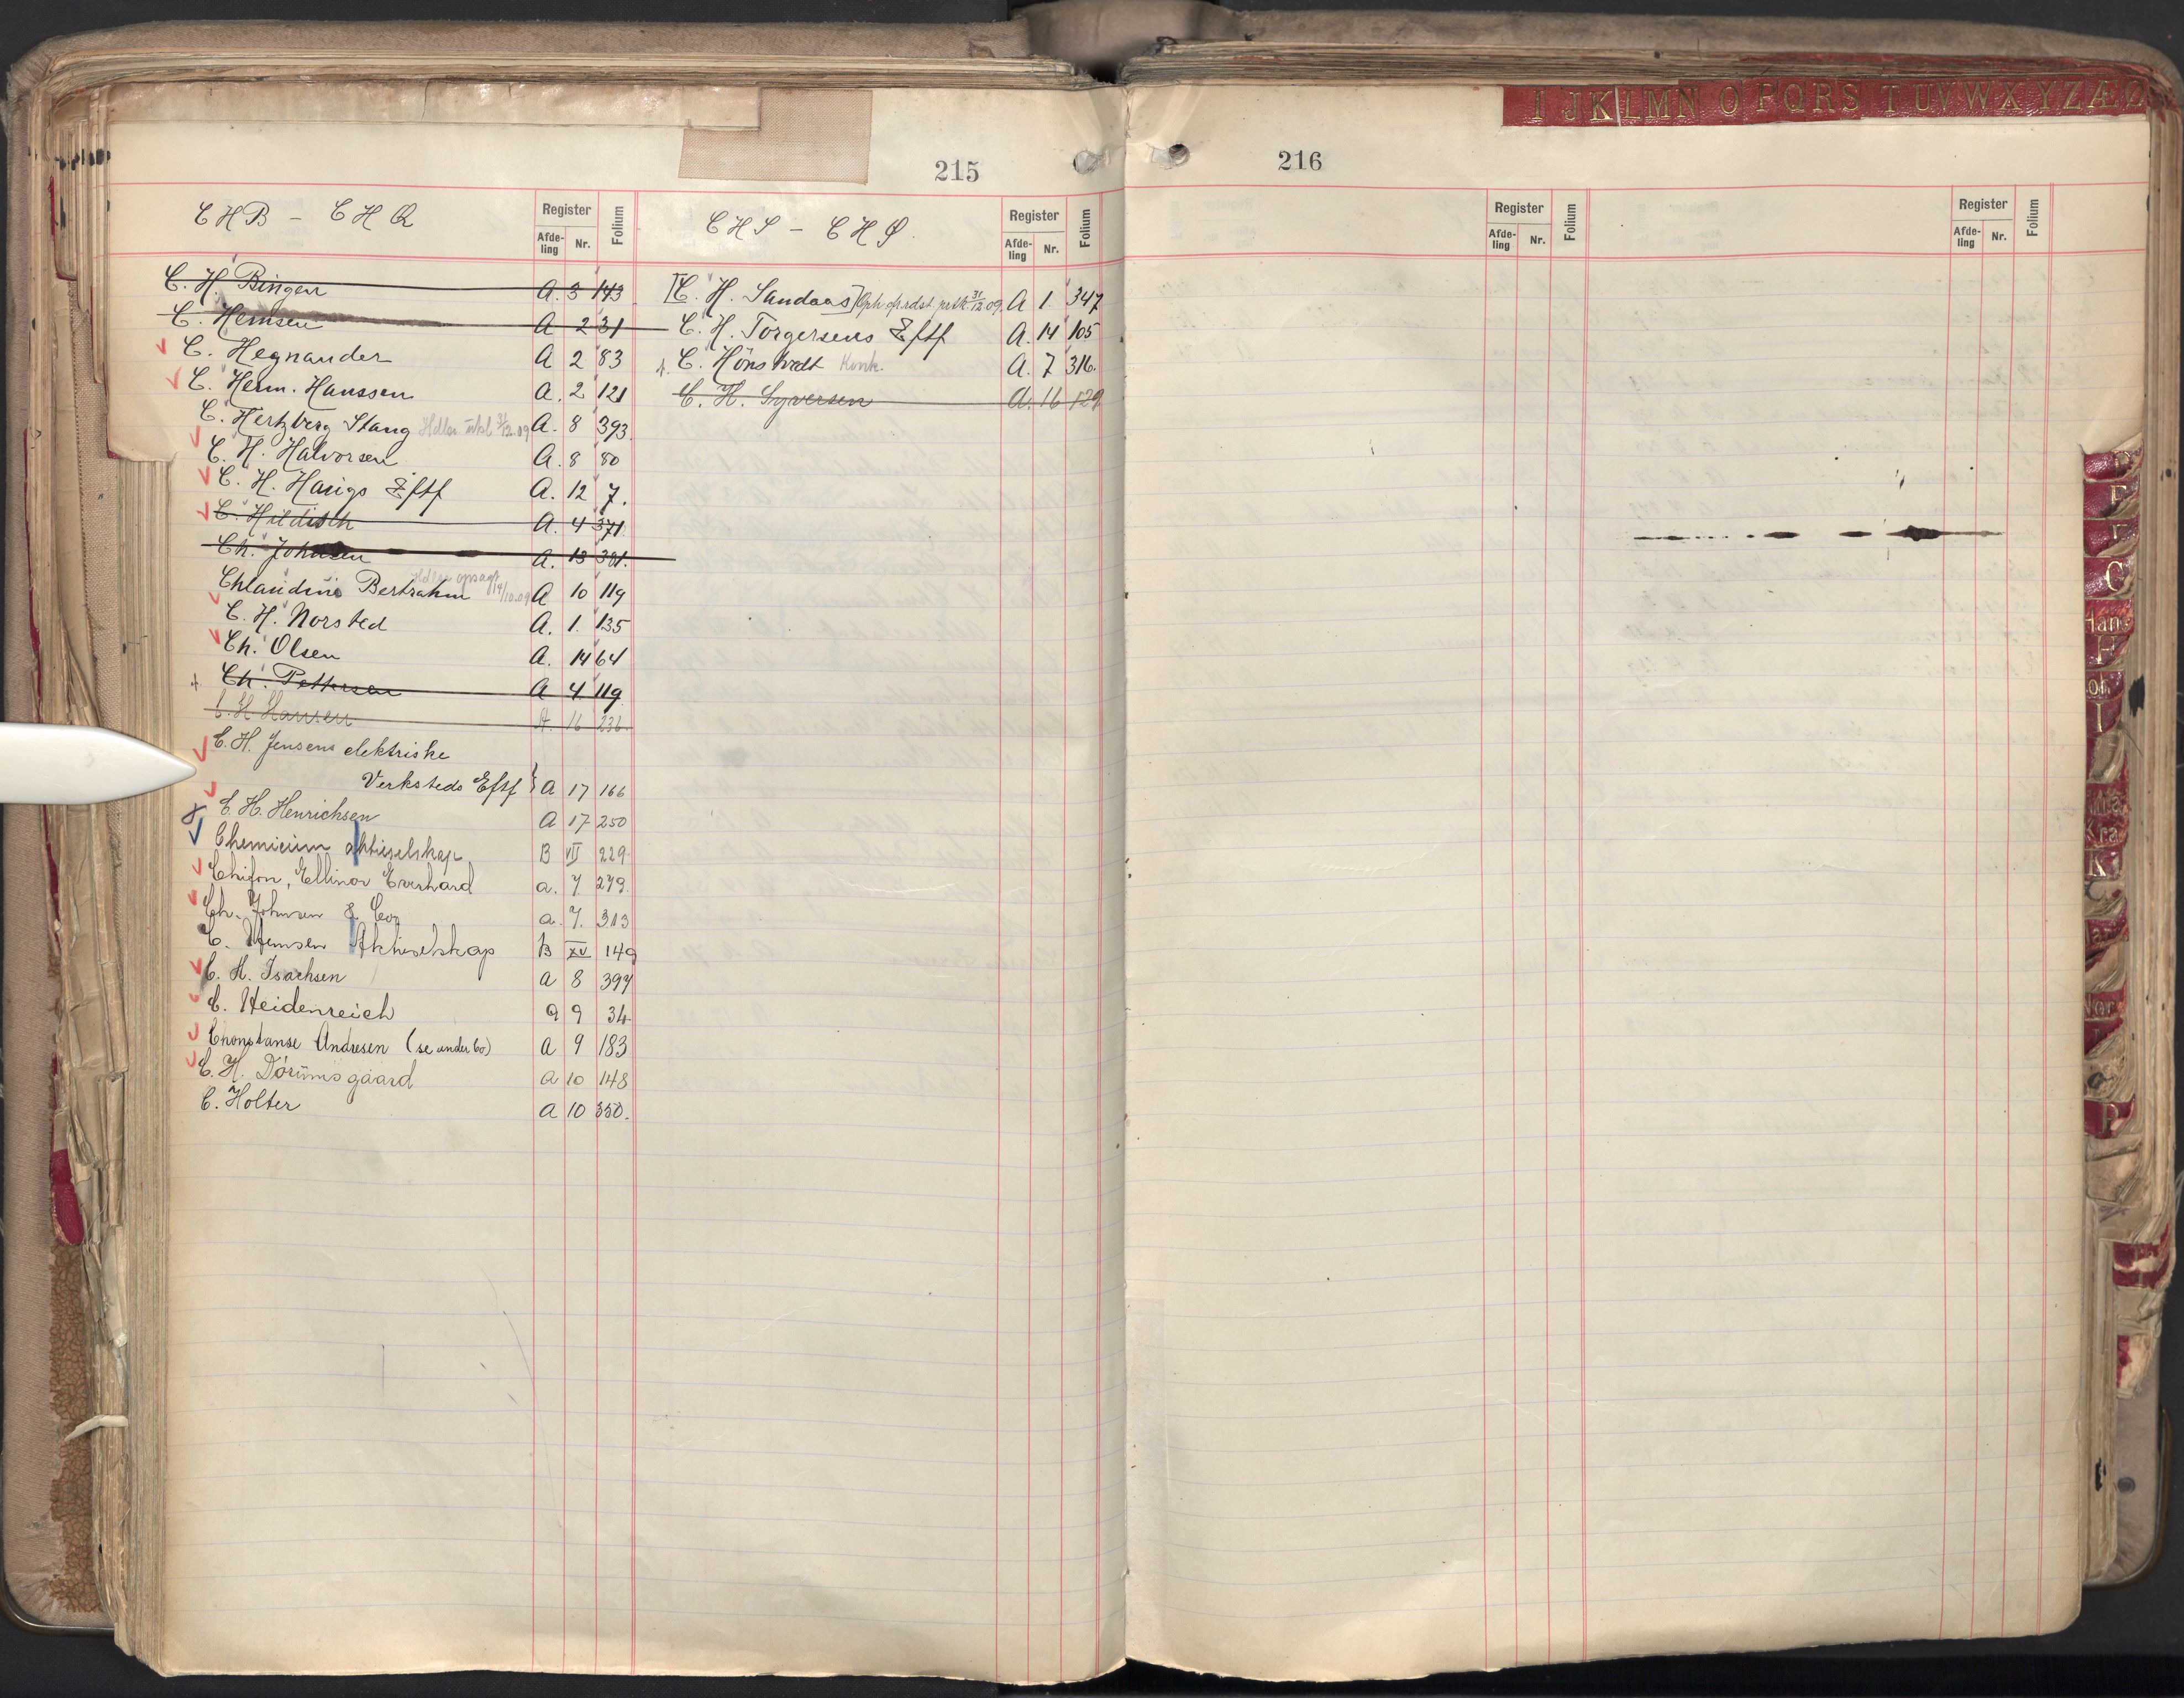 215
CHB - CHR
Register
Afde-
ling
Nr.
Folium
C. H. Bingen A. 3 143
C. Hemsen A 2 31
C. Hegnander A 2 83
C. Herm. Hanssen A. 2 121
C. Hertzberg Stang 31/12.09 A. 8 393
C. H. Halvorsen A. 8 80
C. H. Haugs Eftf A. 12 7.
C. Hildisch A. 4 371
Ch. Johnsen A. 13 381.
Chlaudine Bertrahm Hdler opsagt 14/10.09 A 10 119
C. H. Norsted A. 1. 135
Ch. Olsen A. 14 64
Ch. Pettersen A 4 119
C. H. Hansen A 16 236.
C. H. Jensens elektriske
Verksteds Eftf } A 17 166
C. H. Henrichsen A 17 250
Chemicum aktieselskap B VII 229.
Chifon, Ellinor Everhard a. 7. 279.
Ch. Johnsen & Co. a. 7. 313
C. Hemsen Aktieselskap B XV 149
C. H. Isachsen a 8 397
C. Heidenreich a 9 34
Chonstanse Andresen (se under Co) a 9 183
C. H. Dørumsgaard a 10 148
C. Holter a 10 350.
CHS - CHØ.
Register
Afde-
ling
Nr.
Folium
[C. H. Sandaas] 31/12 09. A 1. 347
C. H. Torgersens Eftf A. 14 105
C. Hönstvedt Konk. A. 7 316.
C. H. Syversen A. 16 129
216
Register
Afde-
ling
Nr.
Folium
Register
Afde-
ling
Nr.
Folium
I J K L M N O P Q R S T U V W X Y Z Æ Ø